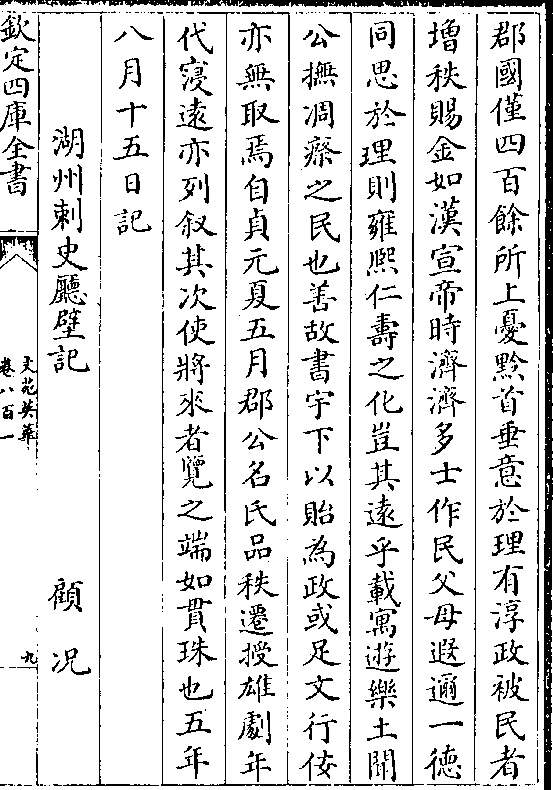 郡國僅四百餘所上憂黔首垂意於理有淳政被民者
增秩賜金如漢宣帝時濟濟多士作民父母遐邇一徳
同思於理則雍熈仁夀之化豈其遠乎載寓遊樂土聞
公撫凋瘵之民也善故書宇下以貽為政或足文行伎
亦無取焉自貞元夏五月郡公名氏品秩遷授雄劇年
代寖遠亦列叙其次使將來者覽之端如貫珠也五年
八月十五日記
湖州刺史廳壁記 顧况
欽定四庫全書
文苑英華
卷八百一
九